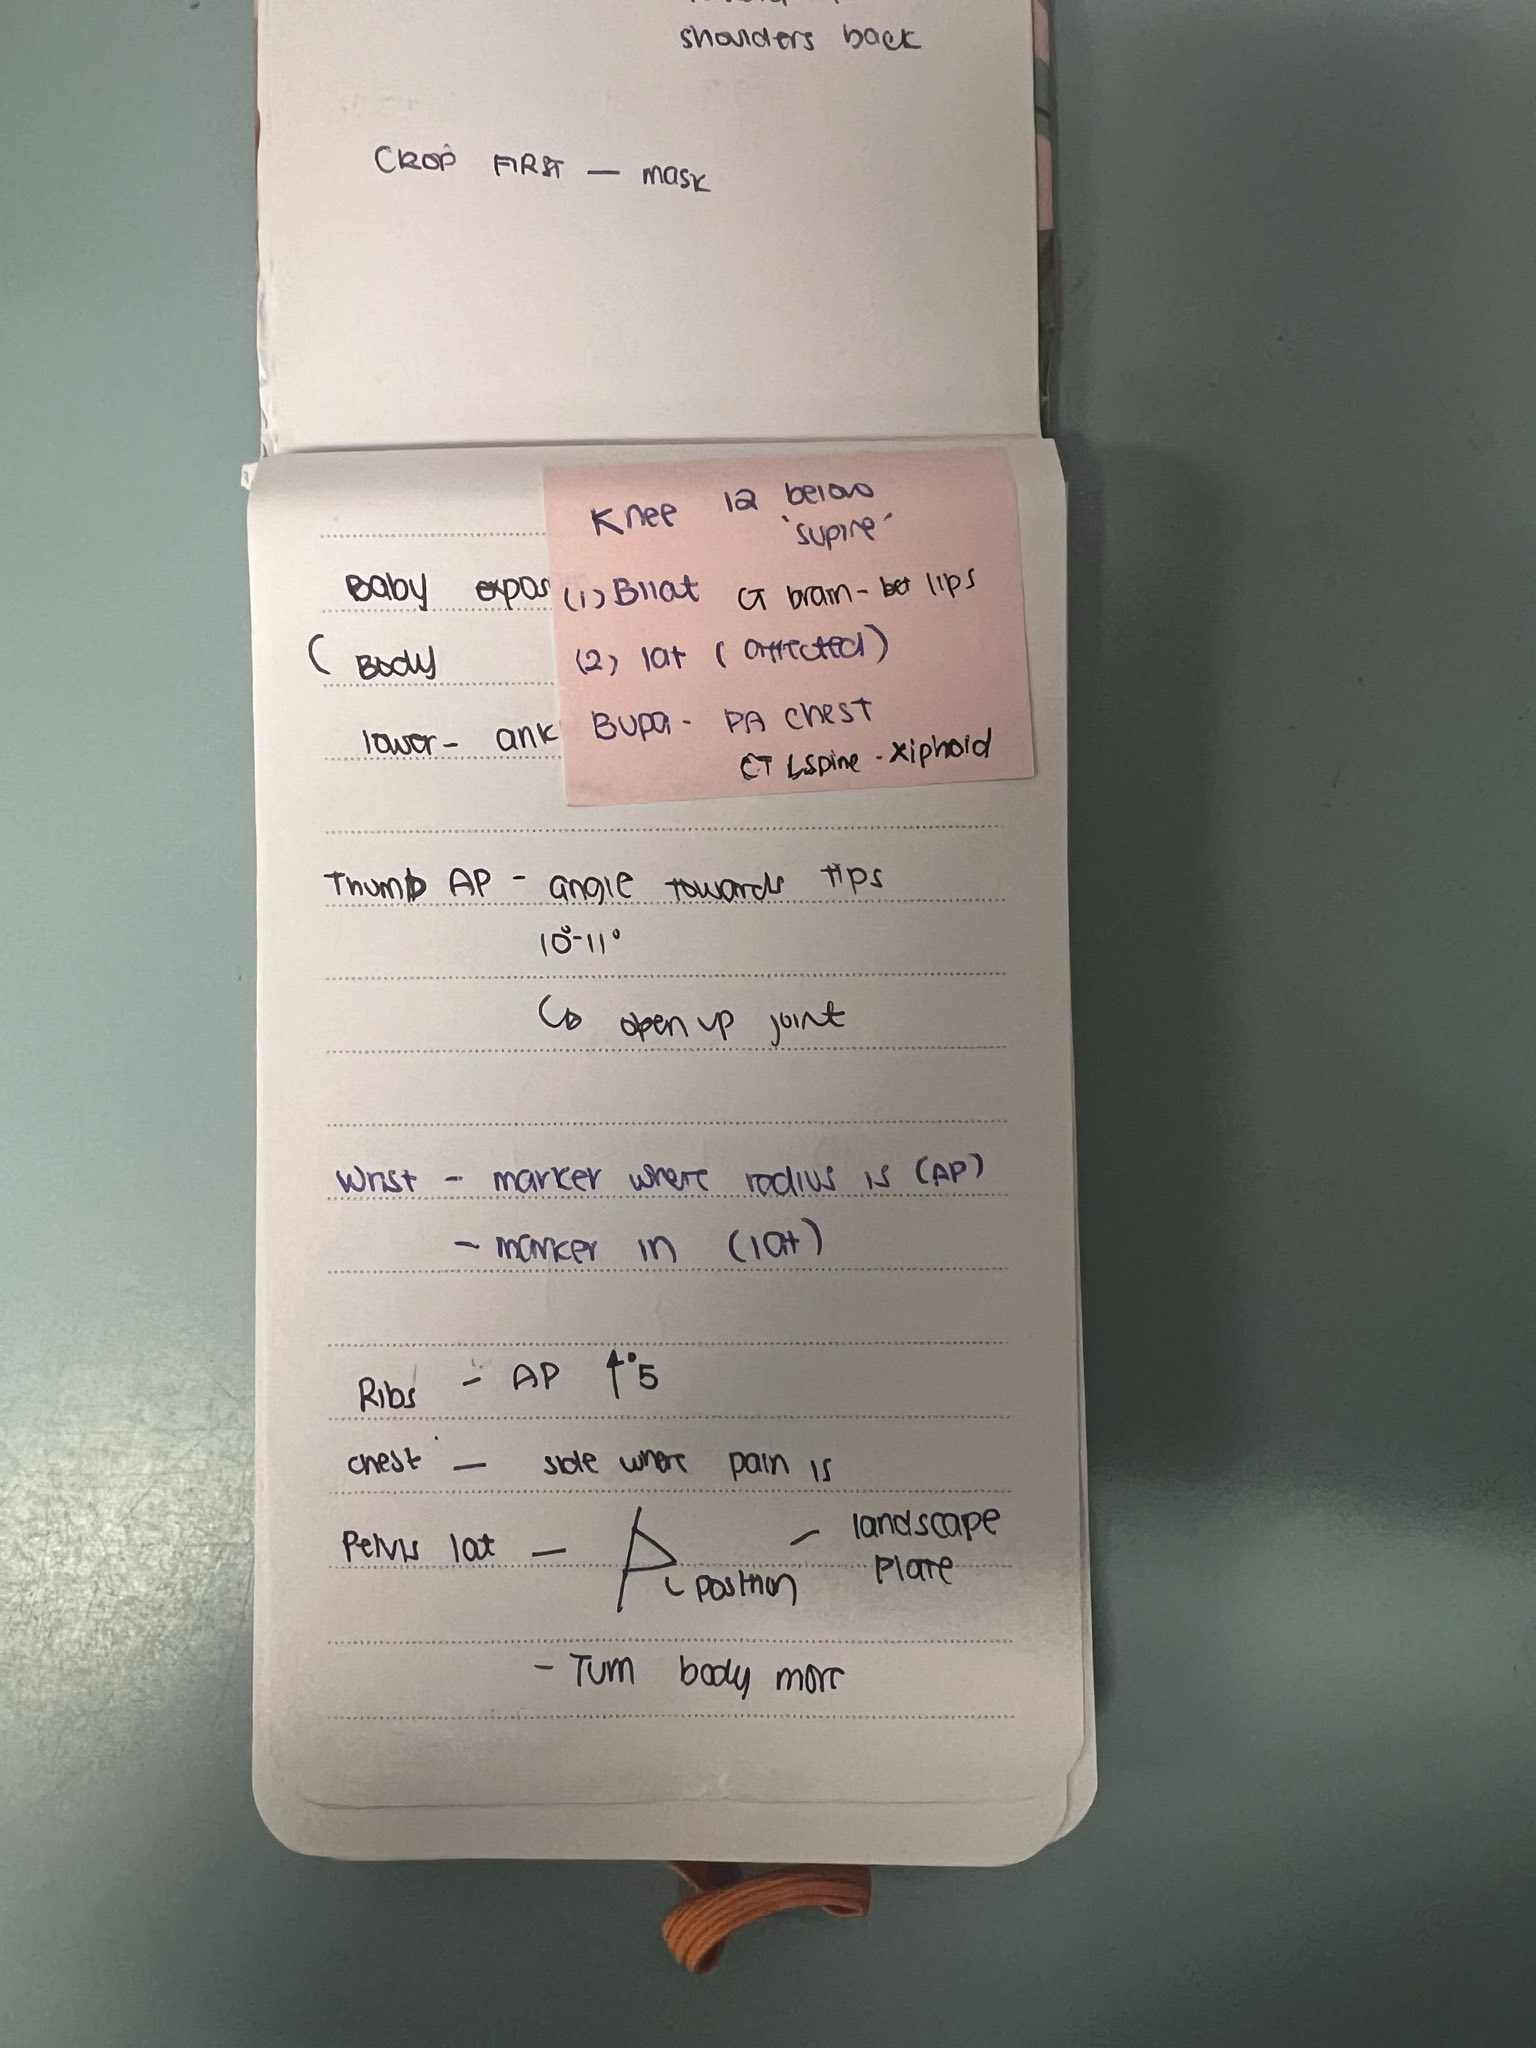 shoulders back
CROP FIRST — mask
Knee 12 below
'supine'
(1) Bilat CT brain - bet lips
(2) lat (affected)
Bupa - PA chest
CT Lspine - xiphoid
Baby expos
( Body
lower - ank
Thumb AP - angle towards tips
10°-11°
↳ open up joint
Wrist - marker where radius is (AP)
- marker in (lat)
Ribs - AP ↑°5
chest — side where pain is
Pelvis lat — position — landscape
plate
- Turn body more